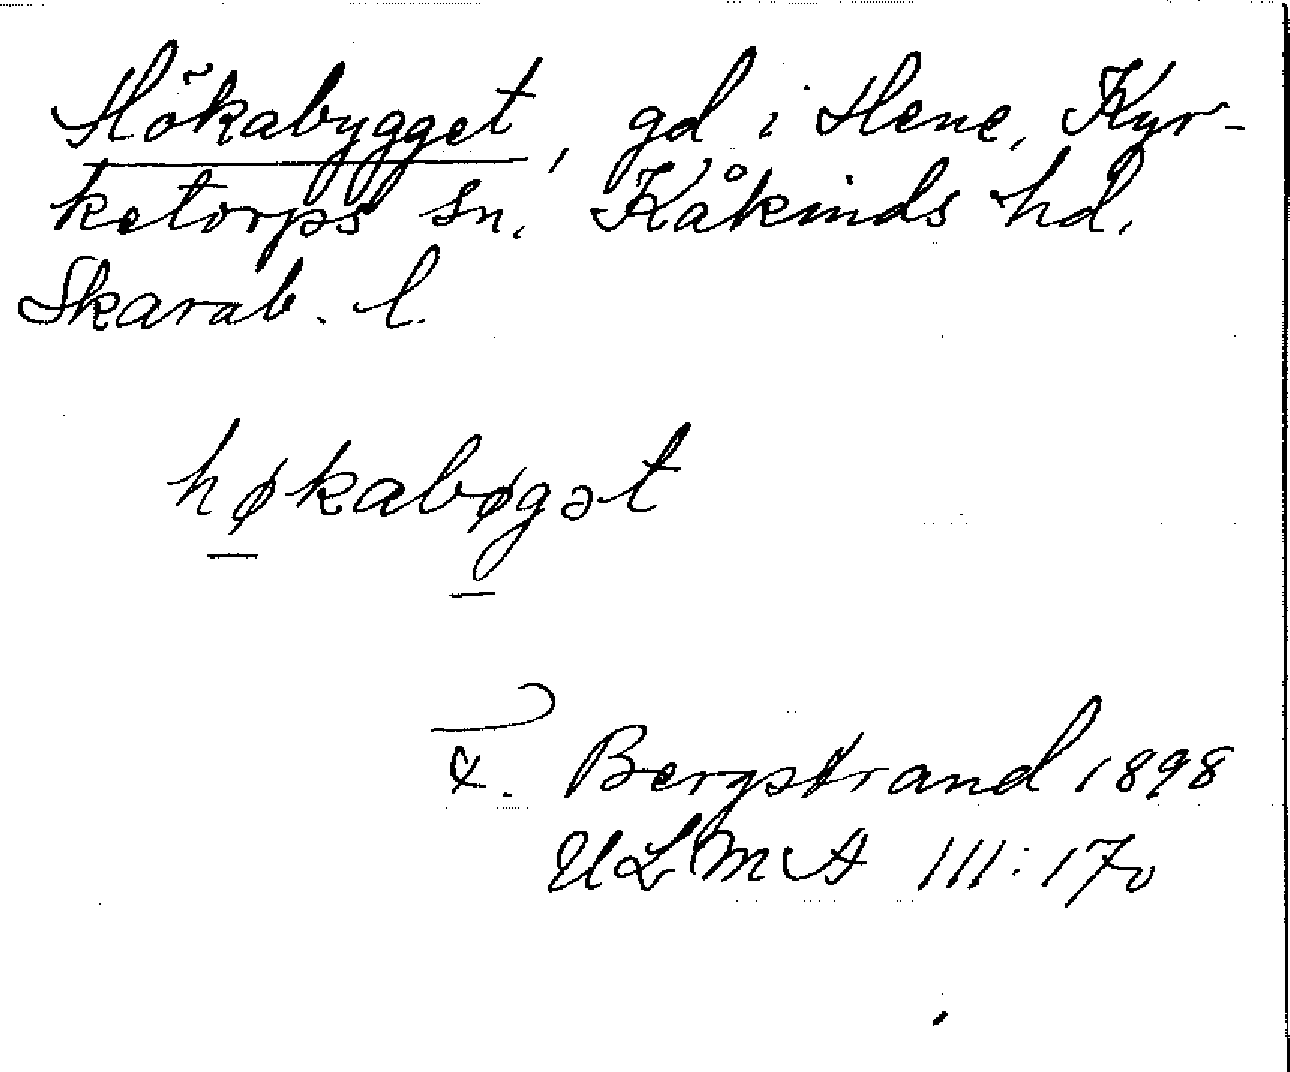 Hökabygget, gd i Hene, Kyr-
ketorps sn. Kåkinds hd.
Skarab. l.
høkabøgət
F. Bergstrand 1898
ULMA III:170